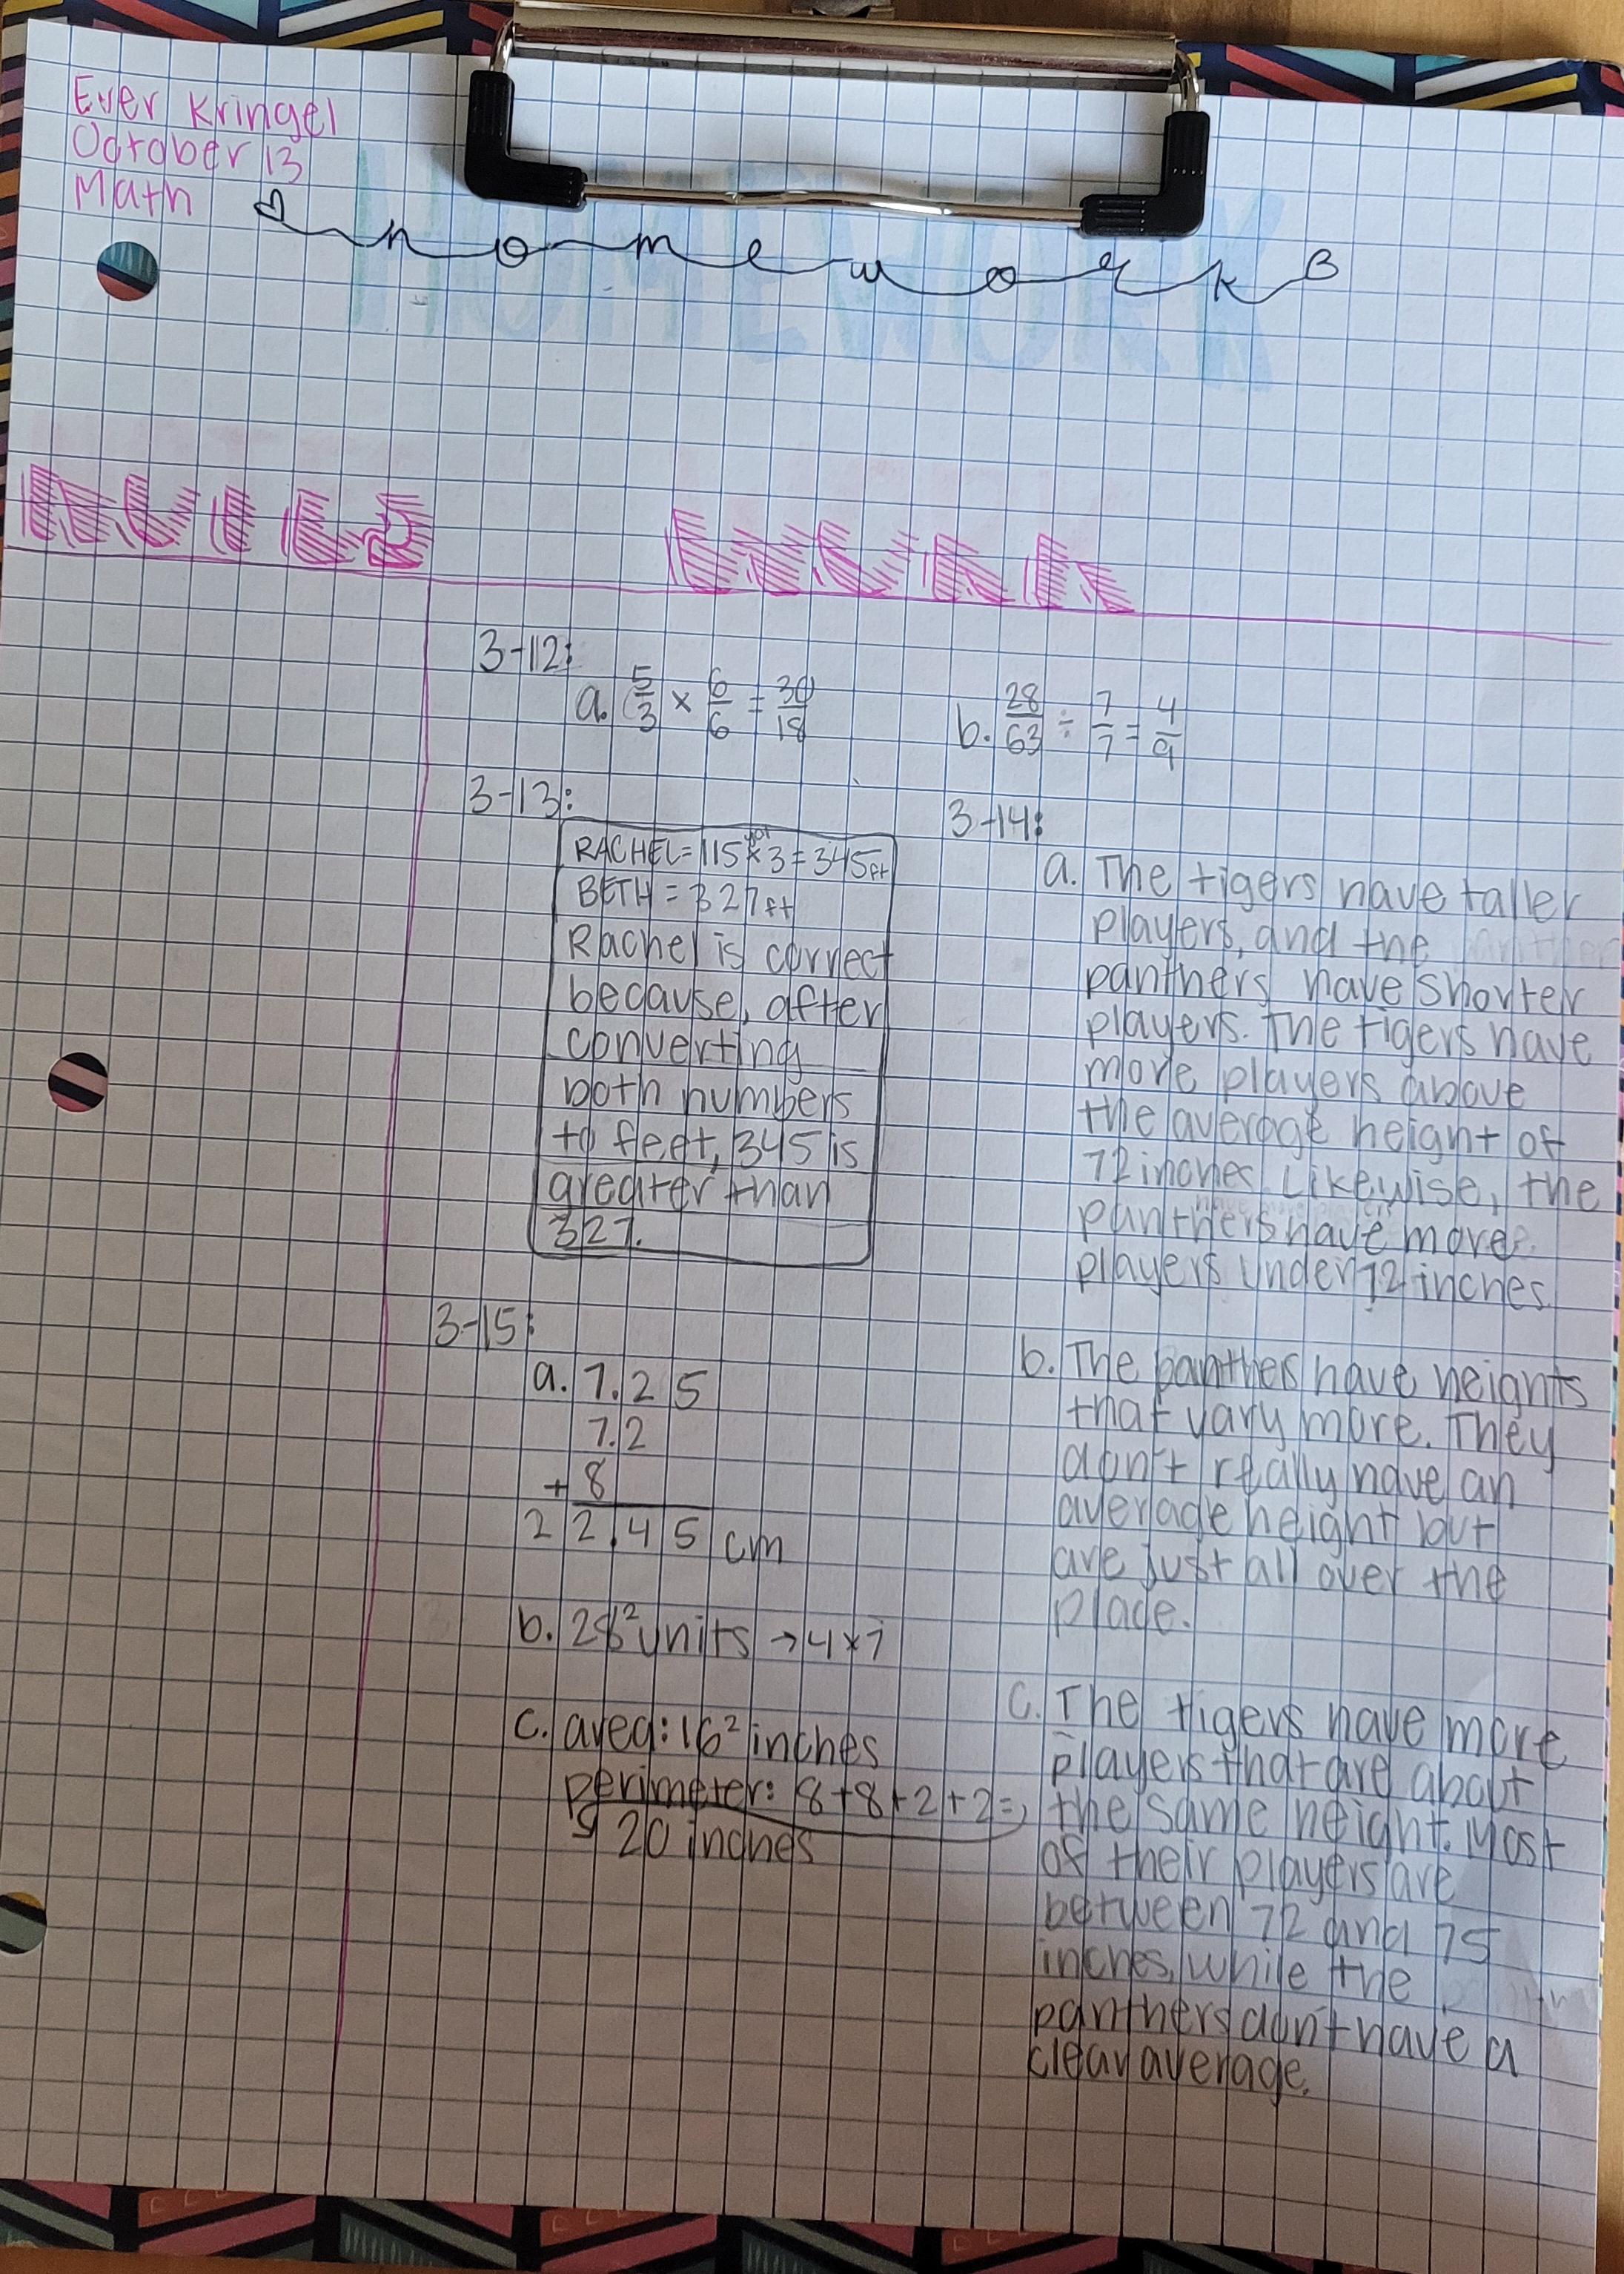 Ever Kringel
October 13
Math
homework
HOMEWORK
3-12:
a. 5/3 × 6/6 = 30/18
b. 28/63 ÷ 7/7 = 4/9
3-13:
RACHEL = 115 yd × 3 = 345 ft
BETH = 327 ft
Rachel is correct
because, after
converting
both numbers
to feet, 345 is
greater than
327.
3-14:
a. The tigers have taller
players, and the
panthers have shorter
players. The tigers have
more players above
the average height of
72 inches. Likewise, the
panthers have more
players under 72 inches.
b. The panthers have heights
that vary more. They
don't really have an
average height but
are just all over the
place.
c. The tigers have more
players that are about
the same height. Most
of their players are
between 72 and 75
inches, while the
panthers don't have a
clear average.
3-15:
a. 7.25
7.2
+ 8
22.45 cm
b. 28² units → 4 × 7
c. area: 16² inches
perimeter: 8+8+2+2=
20 inches